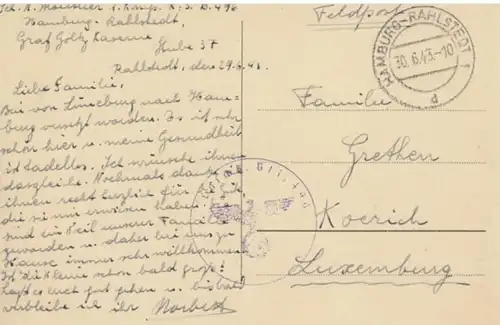 Hamburg-Rahlstedt,
Graf Goltz Kaserne
Stube 37
Rahlstedt, den 29.6.43.
Liebe Familie,
Bin von Lüneburg nach Ham=
burg versetzt worden. Es ist sehr
schön hier u. meine Gesundheit
ist tadellos. Ich wünsche ihnen
dasgleiche. Nochmals danke ich
ihnen recht herzlich für
die sie mir erwiesen haben.
sind ein Teil unserer Familie
geworden u. daher bei uns zu
Hause immer sehr willkommen.
Ist die kleine schon bald groß?
Laßt es euch gut gehen u. bis bald
verbleibe ich ihr Norbert
Feldpost
HAMBURG-RAHLSTEDT 1
30.6.43.-10
d
Familie
Grethen
Koerich
Luxemburg